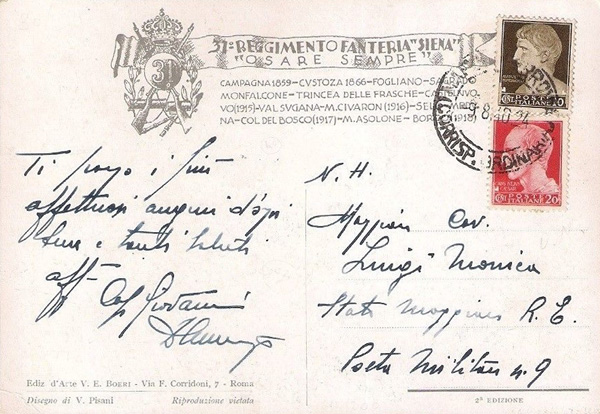 31º REGGIMENTO FANTERIA "SIENA"
"OSARE SEMPRE"
31
CAMPAGNA 1859 - CVSTOZA 1866 - FOGLIANO -
MONFALCONE - TRINCEA DELLE FRASCHE -
VO (1915) - VAL SVGANA - M. CIVARON (1916) -
NA - COL DEL BOSCO (1917) - M. ASOLONE - (1918)
POSTE
ITALIANE
10
8.40
CORRISP. ORDINARIE
POSTE
ITALIANE
20
Ti porgo i più
affettuosi auguri d'ogni
bene e tanti saluti
aff.
Cap. Giovanni
N. H.
Maggior Cav.
Luigi Monica
Stato Maggiore R. E.
Posta Militare n. 9
Ediz. d'Arte V. E. BOERI - Via F. Corridoni, 7 - Roma
Disegno di V. Pisani Riproduzione vietata
2ª EDIZIONE